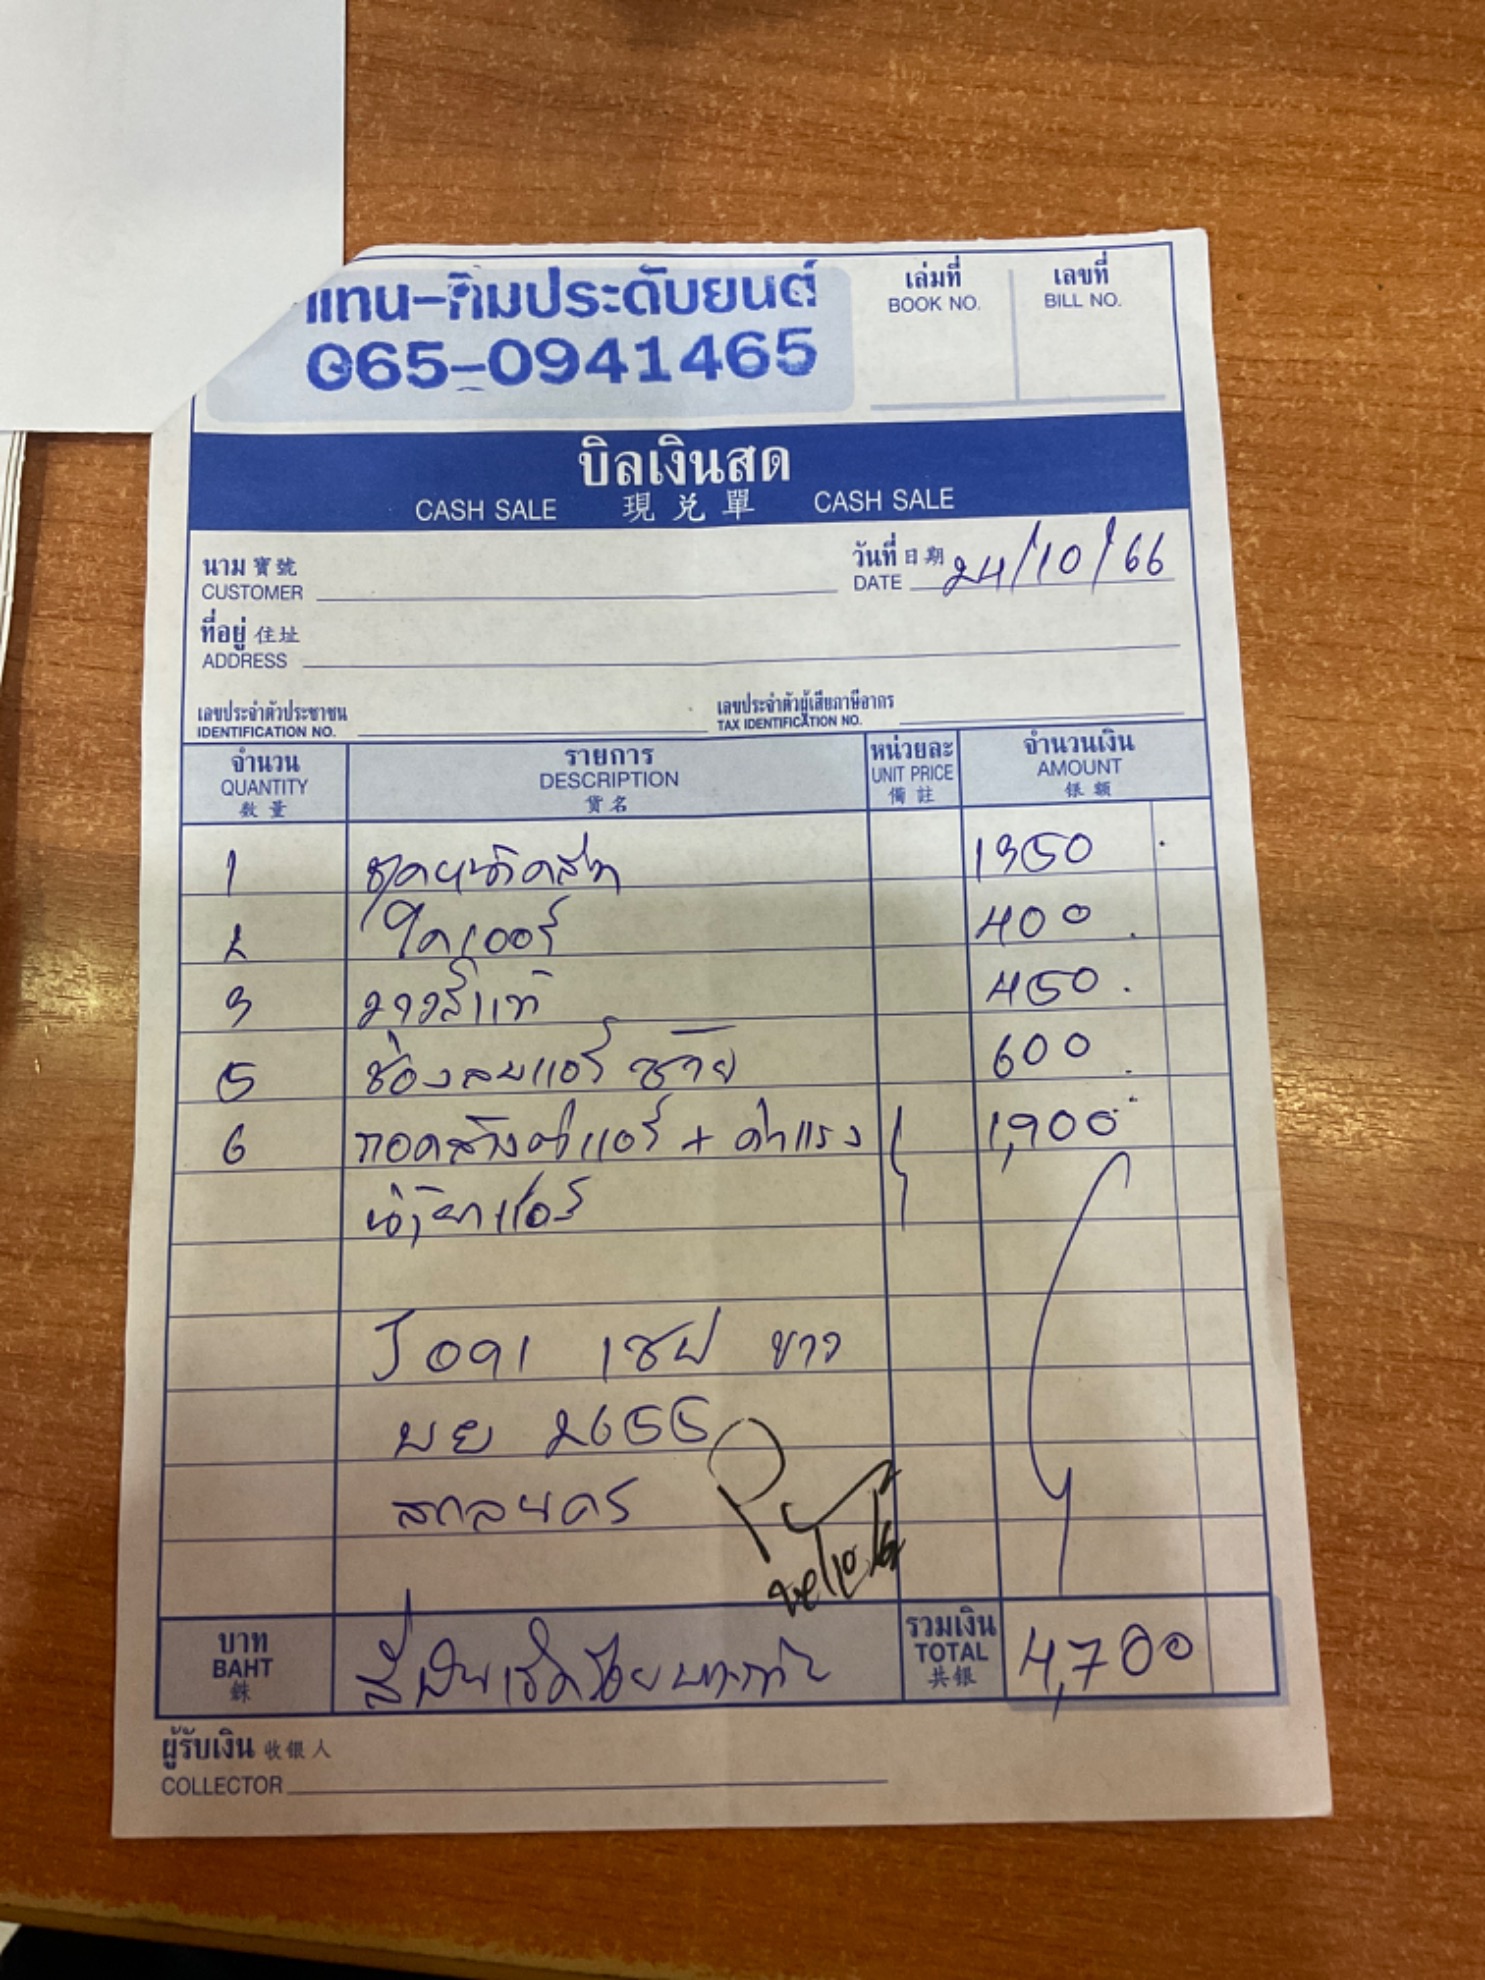 แทน-กิมประดับยนต์
065-0941465
เล่มที่ เลขที่
BOOK NO. BILL NO.
บิลเงินสด
CASH SALE 現兌單 CASH SALE
นาม 寶號 วันที่ 日期 24/10/66
CUSTOMER DATE
ที่อยู่ 住址
ADDRESS
เลขประจำตัวประชาชน เลขประจำตัวผู้เสียภาษีอากร
IDENTIFICATION NO. TAX IDENTIFICATION NO.
จำนวน รายการ หน่วยละ จำนวนเงิน
QUANTITY DESCRIPTION UNIT PRICE AMOUNT
数量 貨名 備註 銀額
1 1350
2 ไดเออร์ 400
3 วาวล์แท้ 450
5 ช่องลมแอร์ ซ้าย 600
6 ถอดล้างตู้แอร์ + ค่าแรง 1,900
น้ำยาแอร์
J 091 เชฟ ขาว
บย 2655
สกลนคร
บาท รวมเงิน
BAHT สี่พันเจ็ดร้อยบาทถ้วน TOTAL 4,700
銖 共銀
ผู้รับเงิน 收銀人
COLLECTOR